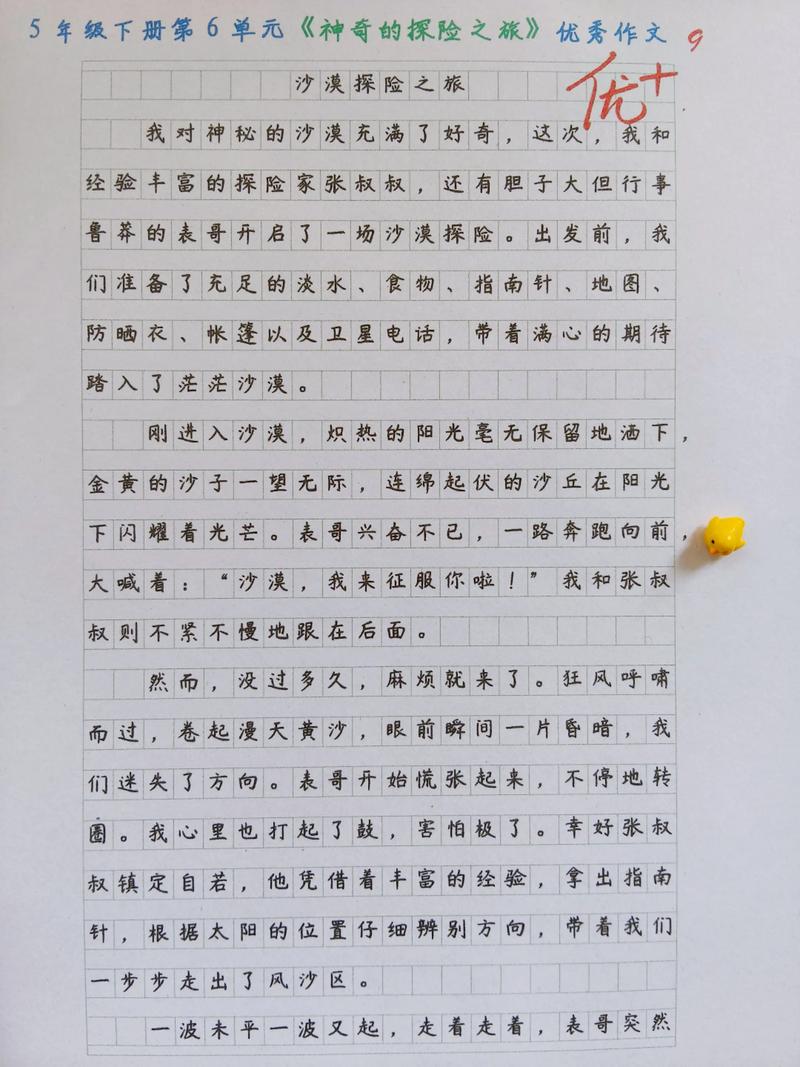 5年级下册第6单元《神奇的探险之旅》优秀作文 9
优+
沙漠探险之旅
我对神秘的沙漠充满了好奇，这次，我和
经验丰富的探险家张叔叔，还有胆子大但行事
鲁莽的表哥开启了一场沙漠探险。出发前，我
们准备了充足的淡水、食物、指南针、地图、
防晒衣、帐篷以及卫星电话，带着满心的期待
踏入了茫茫沙漠。
刚进入沙漠，炽热的阳光毫无保留地洒下，
金黄的沙子一望无际，连绵起伏的沙丘在阳光
下闪耀着光芒。表哥兴奋不已，一路奔跑向前，
大喊着：“沙漠，我来征服你啦！”我和张叔
叔则不紧不慢地跟在后面。
然而，没过多久，麻烦就来了。狂风呼啸
而过，卷起漫天黄沙，眼前瞬间一片昏暗，我
们迷失了方向。表哥开始慌张起来，不停地转
圈。我心里也打起了鼓，害怕极了。幸好张叔
叔镇定自若，他凭借着丰富的经验，拿出指南
针，根据太阳的位置仔细辨别方向，带着我们
一步步走出了风沙区。
一波未平一波又起，走着走着，表哥突然